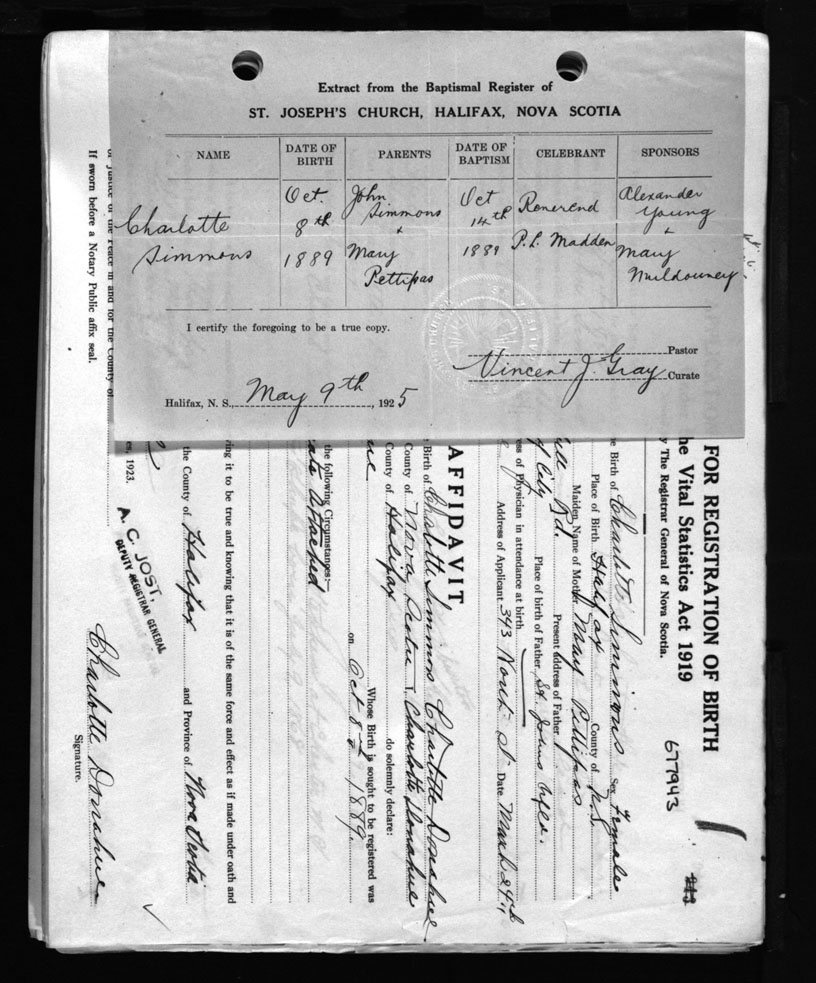 Extract from the Baptismal Register of
ST. JOSEPH'S CHURCH, HALIFAX, NOVA SCOTIA
NAME DATE OF BIRTH PARENTS DATE OF BAPTISM CELEBRANT SPONSORS
Charlotte Simmons
Oct. 8th 1889
John Simmons
+
Mary Pettipas
Oct 14th 1889
Reverend
P. L. Madden
Alexander Young
+
Mary Muldowney
I certify the foregoing to be a true copy.
Vincent J. Gray Pastor
Curate
Halifax, N. S., May 9th, 1925
FOR REGISTRATION OF BIRTH
he Vital Statistics Act 1919
y The Registrar General of Nova Scotia.
677943
e Birth of Charlotte Simmons Sex Female
Place of Birth Halifax County of N.S
Maiden Name of Mother May Pettipas
Rd. Present address of Father
of City Place of birth of Father St. Johns
ss of Physician in attendance at birth
Address of Applicant 343 Date March 24th
AFFIDAVIT
e Birth of Charlotte Simmons Charlotte Donahue
County of Nova Scotia I, Charlotte Donahue
County of Halifax do solemnly declare:
Whose Birth is sought to be registered was
on Oct 8th 1889.
the following Circumstances:—
attached
ving it to be true and knowing that it is of the same force and effect as if made under oath and
the County of Halifax and Province of Nova Scotia
es, 1923.
A. C. JOST,
DEPUTY REGISTRAR GENERAL
Charlotte Donahue
Signature.
or Justice of the Peace in and for the County of
If sworn before a Notary Public affix seal.